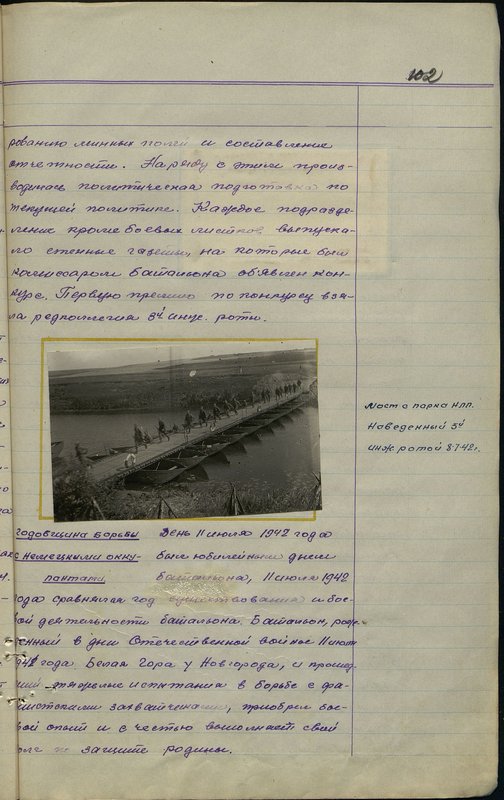 102
рованию минных полей и составление
отчетности. Наряду с этим произ-
водилась политическая подготовка по
текущей политике. Каждое подразде-
ление кроме боевых листков выпуска-
ло стенные газеты, на которые был
комиссаром батальона об'явлен кон-
курс. Первую премию по конкурсу взя-
ла редколлегия 3й инж. роты.
Мост с парка НЛП.
Наведенный 3й
инж. ротой 8.7.42г.
годовщина борьбы
с немецкими окку-
пантами
День 11 июля 1942 года
был юбилейным днем
батальона, 11 июля 1942
года сравнялся год существования и бое-
вой деятельности батальона. Батальон, рож-
денный в дни Отечественной войны 11 июля
1941 года Белая Гора у Новгорода, и прошед-
ший тяжелые испытания в борьбе с фа-
шистскими захватчиками, приобрел бое-
вой опыт и с честью выполняет свой
долг по защите родины.